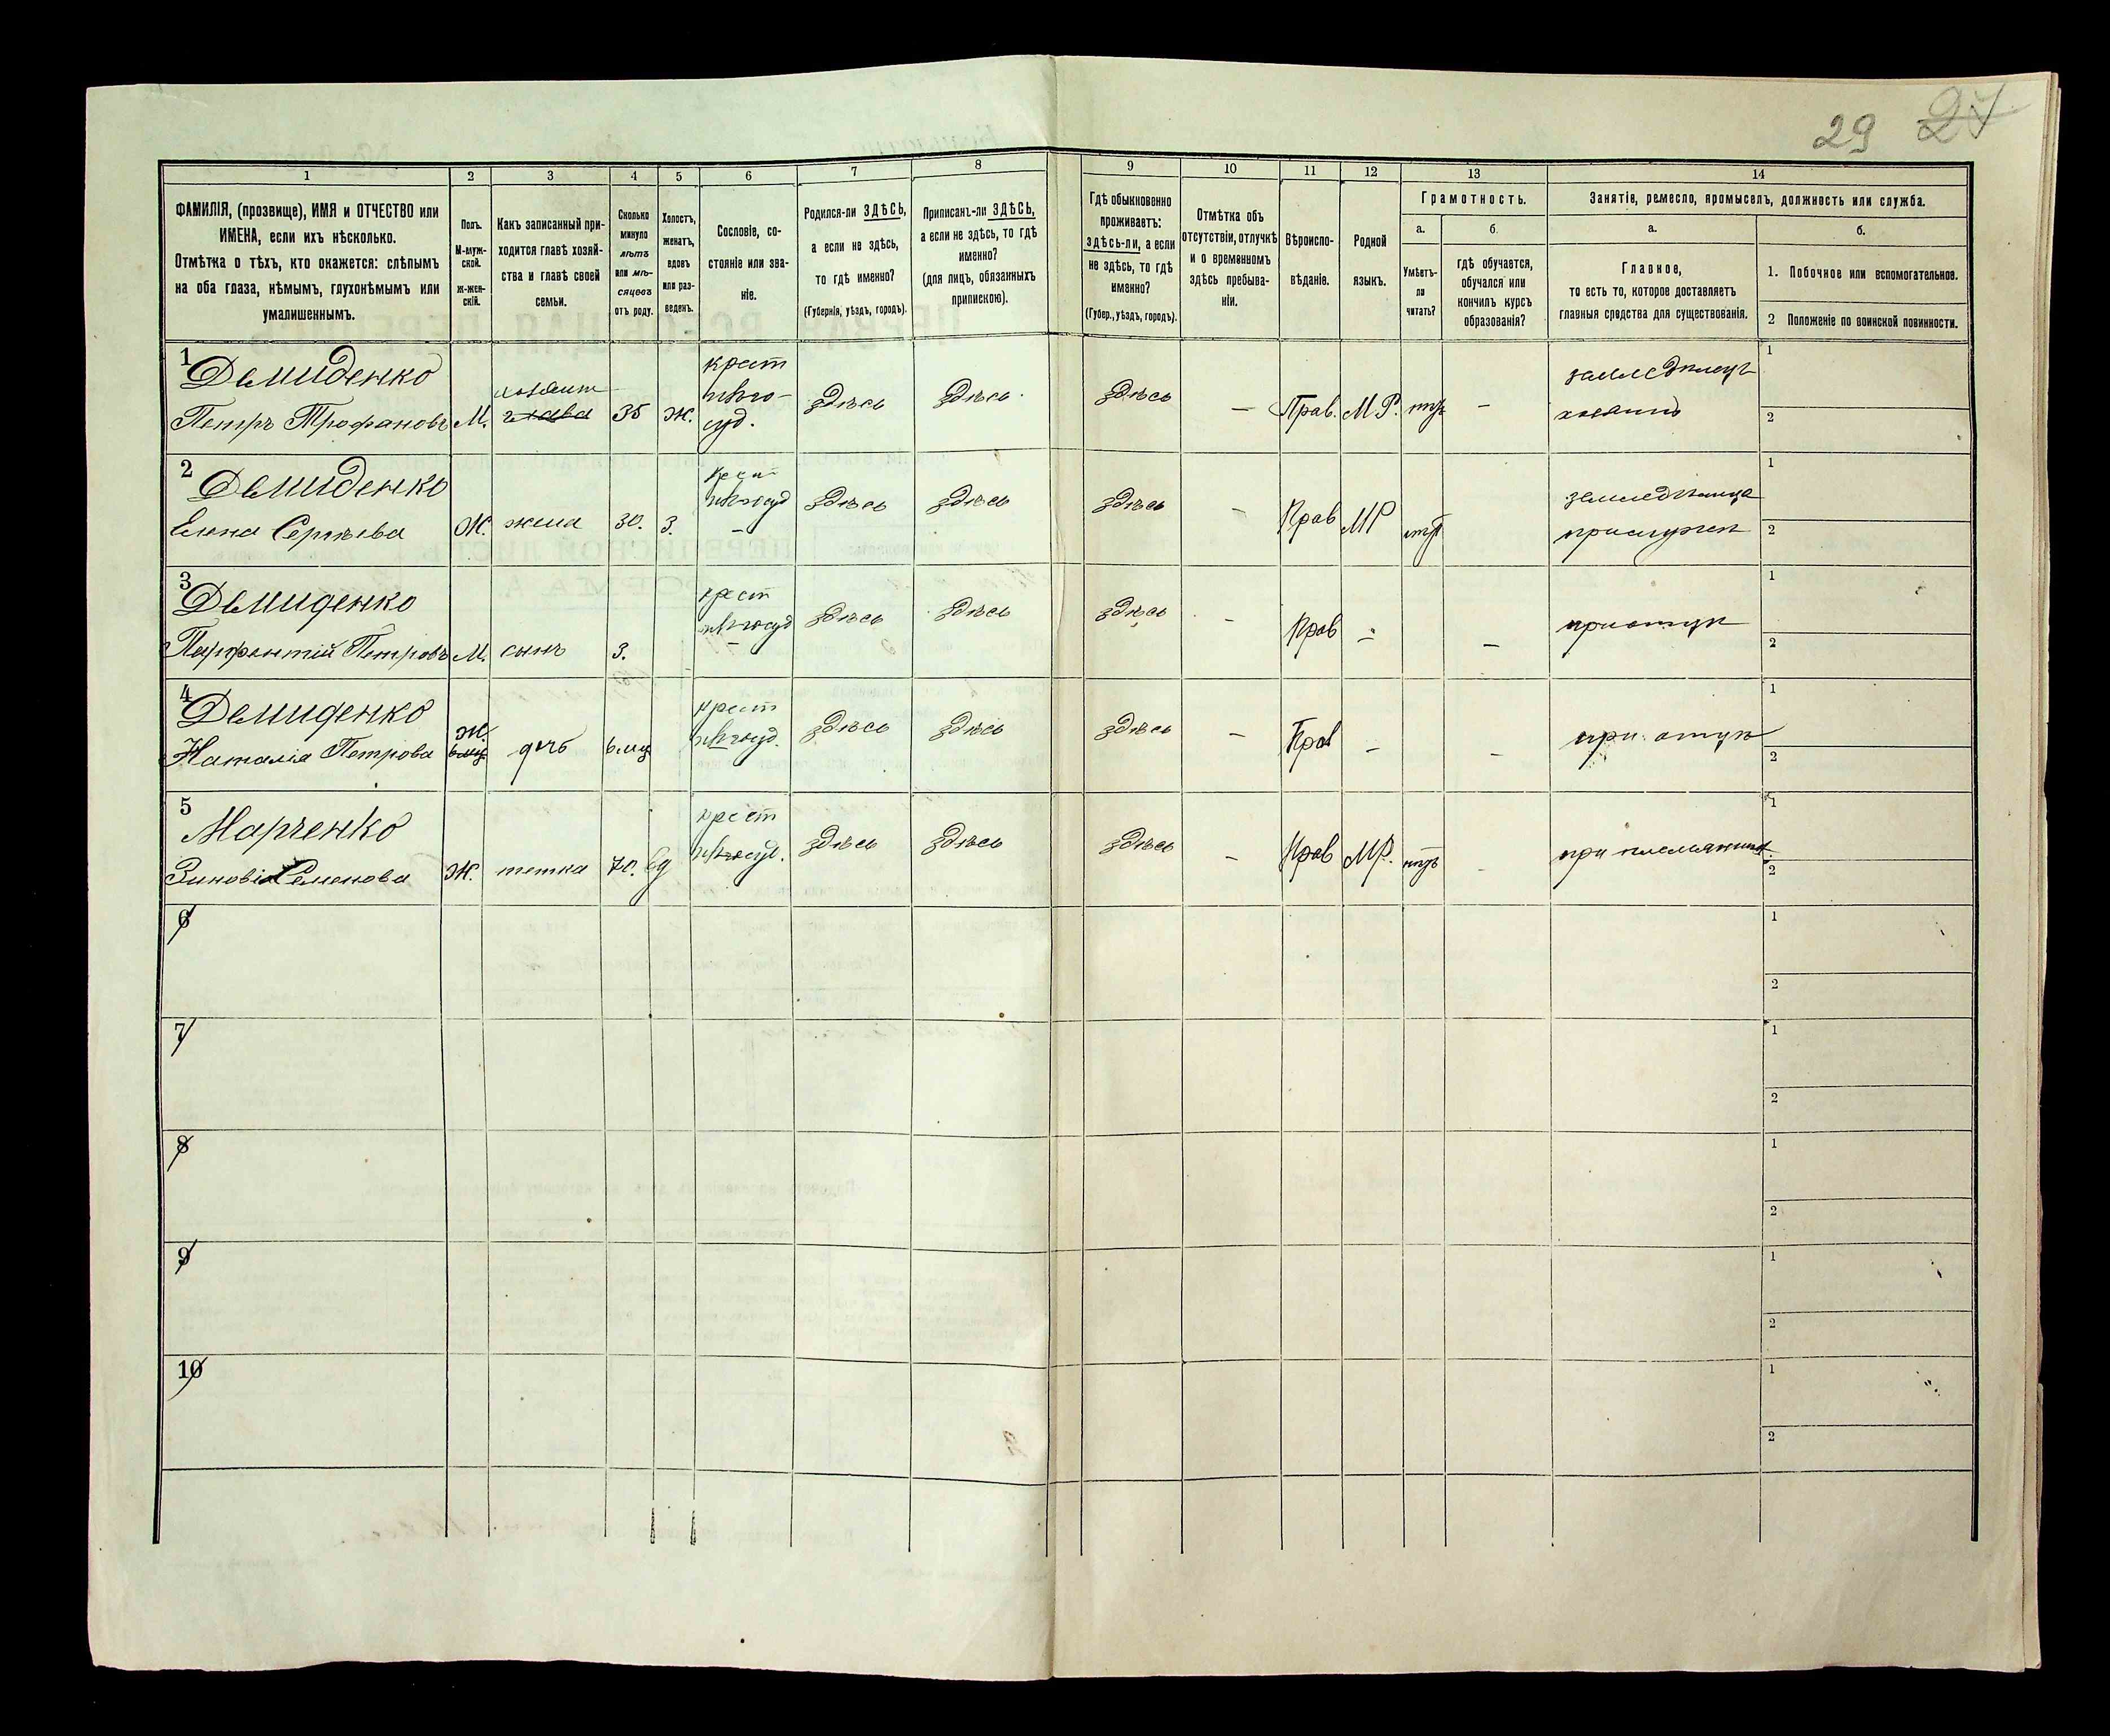 29 27
1 2 3 4 5 6 7 8 9 10 11 12 13 14
ФАМИЛІЯ, (прозвище), ИМЯ и ОТЧЕСТВО или
ИМЕНА, если ихъ нѣсколько.
Отмѣтка о тѣхъ, кто окажется: слѣпымъ
на оба глаза, нѣмымъ, глухонѣмымъ или
умалишеннымъ.
Полъ.
М-муж-
ской.
ж-жен-
скій.
Какъ записанный при-
ходится главѣ хозяй-
ства и главѣ своей
семьи.
Сколько
минуло
лѣтъ
или мѣ-
сяцевъ
отъ роду.
Холостъ,
женатъ,
вдовъ
или раз-
веденъ.
Сословіе, со-
стояніе или зва-
ніе.
Родился-ли ЗДѢСЬ,
а если не здѣсь,
то гдѣ именно?
(Губернія, уѣздъ, городъ).
Приписанъ-ли ЗДѢСЬ,
а если не здѣсь, то гдѣ
именно?
(для лицъ, обязанныхъ
припискою).
Гдѣ обыкновенно
проживаетъ:
здѣсь-ли, а если
не здѣсь, то гдѣ
именно?
(Губер., уѣздъ, городъ).
Отмѣтка объ
отсутствіи, отлучкѣ
и о временномъ
здѣсь пребыва-
ніи.
Вѣроиспо-
вѣданіе.
Родной
языкъ.
Грамотность.
а.
Умѣетъ-
ли
читать?
б.
гдѣ обучается,
обучался или
кончилъ курсъ
образованія?
Занятіе, ремесло, промыселъ, должность или служба.
а.
Главное,
то есть то, которое доставляетъ
главныя средства для существованія.
б.
1. Побочное или вспомогательное.
2 Положеніе по воинской повинности.
1 Демиденко
Петръ Трофановъ М. хозяинъ глава 35 Ж. крест
суд. здѣсь здѣсь здѣсь — Прав. М.Р. — земледѣлецъ
хозяинъ 1
2
2 Демиденко
Елена Сергѣева Ж. жена 30. З. здѣсь здѣсь здѣсь — Прав МР
1
2
3 Демиденко
Парфентій Петровъ М. сынъ 3. крест
здѣсь здѣсь здѣсь — Прав — — при отцѣ 1
2
4 Демиденко
Наталія Петрова Ж. дчь 6 мц крест
здѣсь здѣсь здѣсь — Прав — — при отцѣ 1
2
5 Марченко
Зиновія Семенова Ж. тетка 70. вд крест
здѣсь здѣсь здѣсь — Прав МР. при племянникѣ 1
2
6 1
2
7 1
2
8 1
2
9 1
2
10 1
2